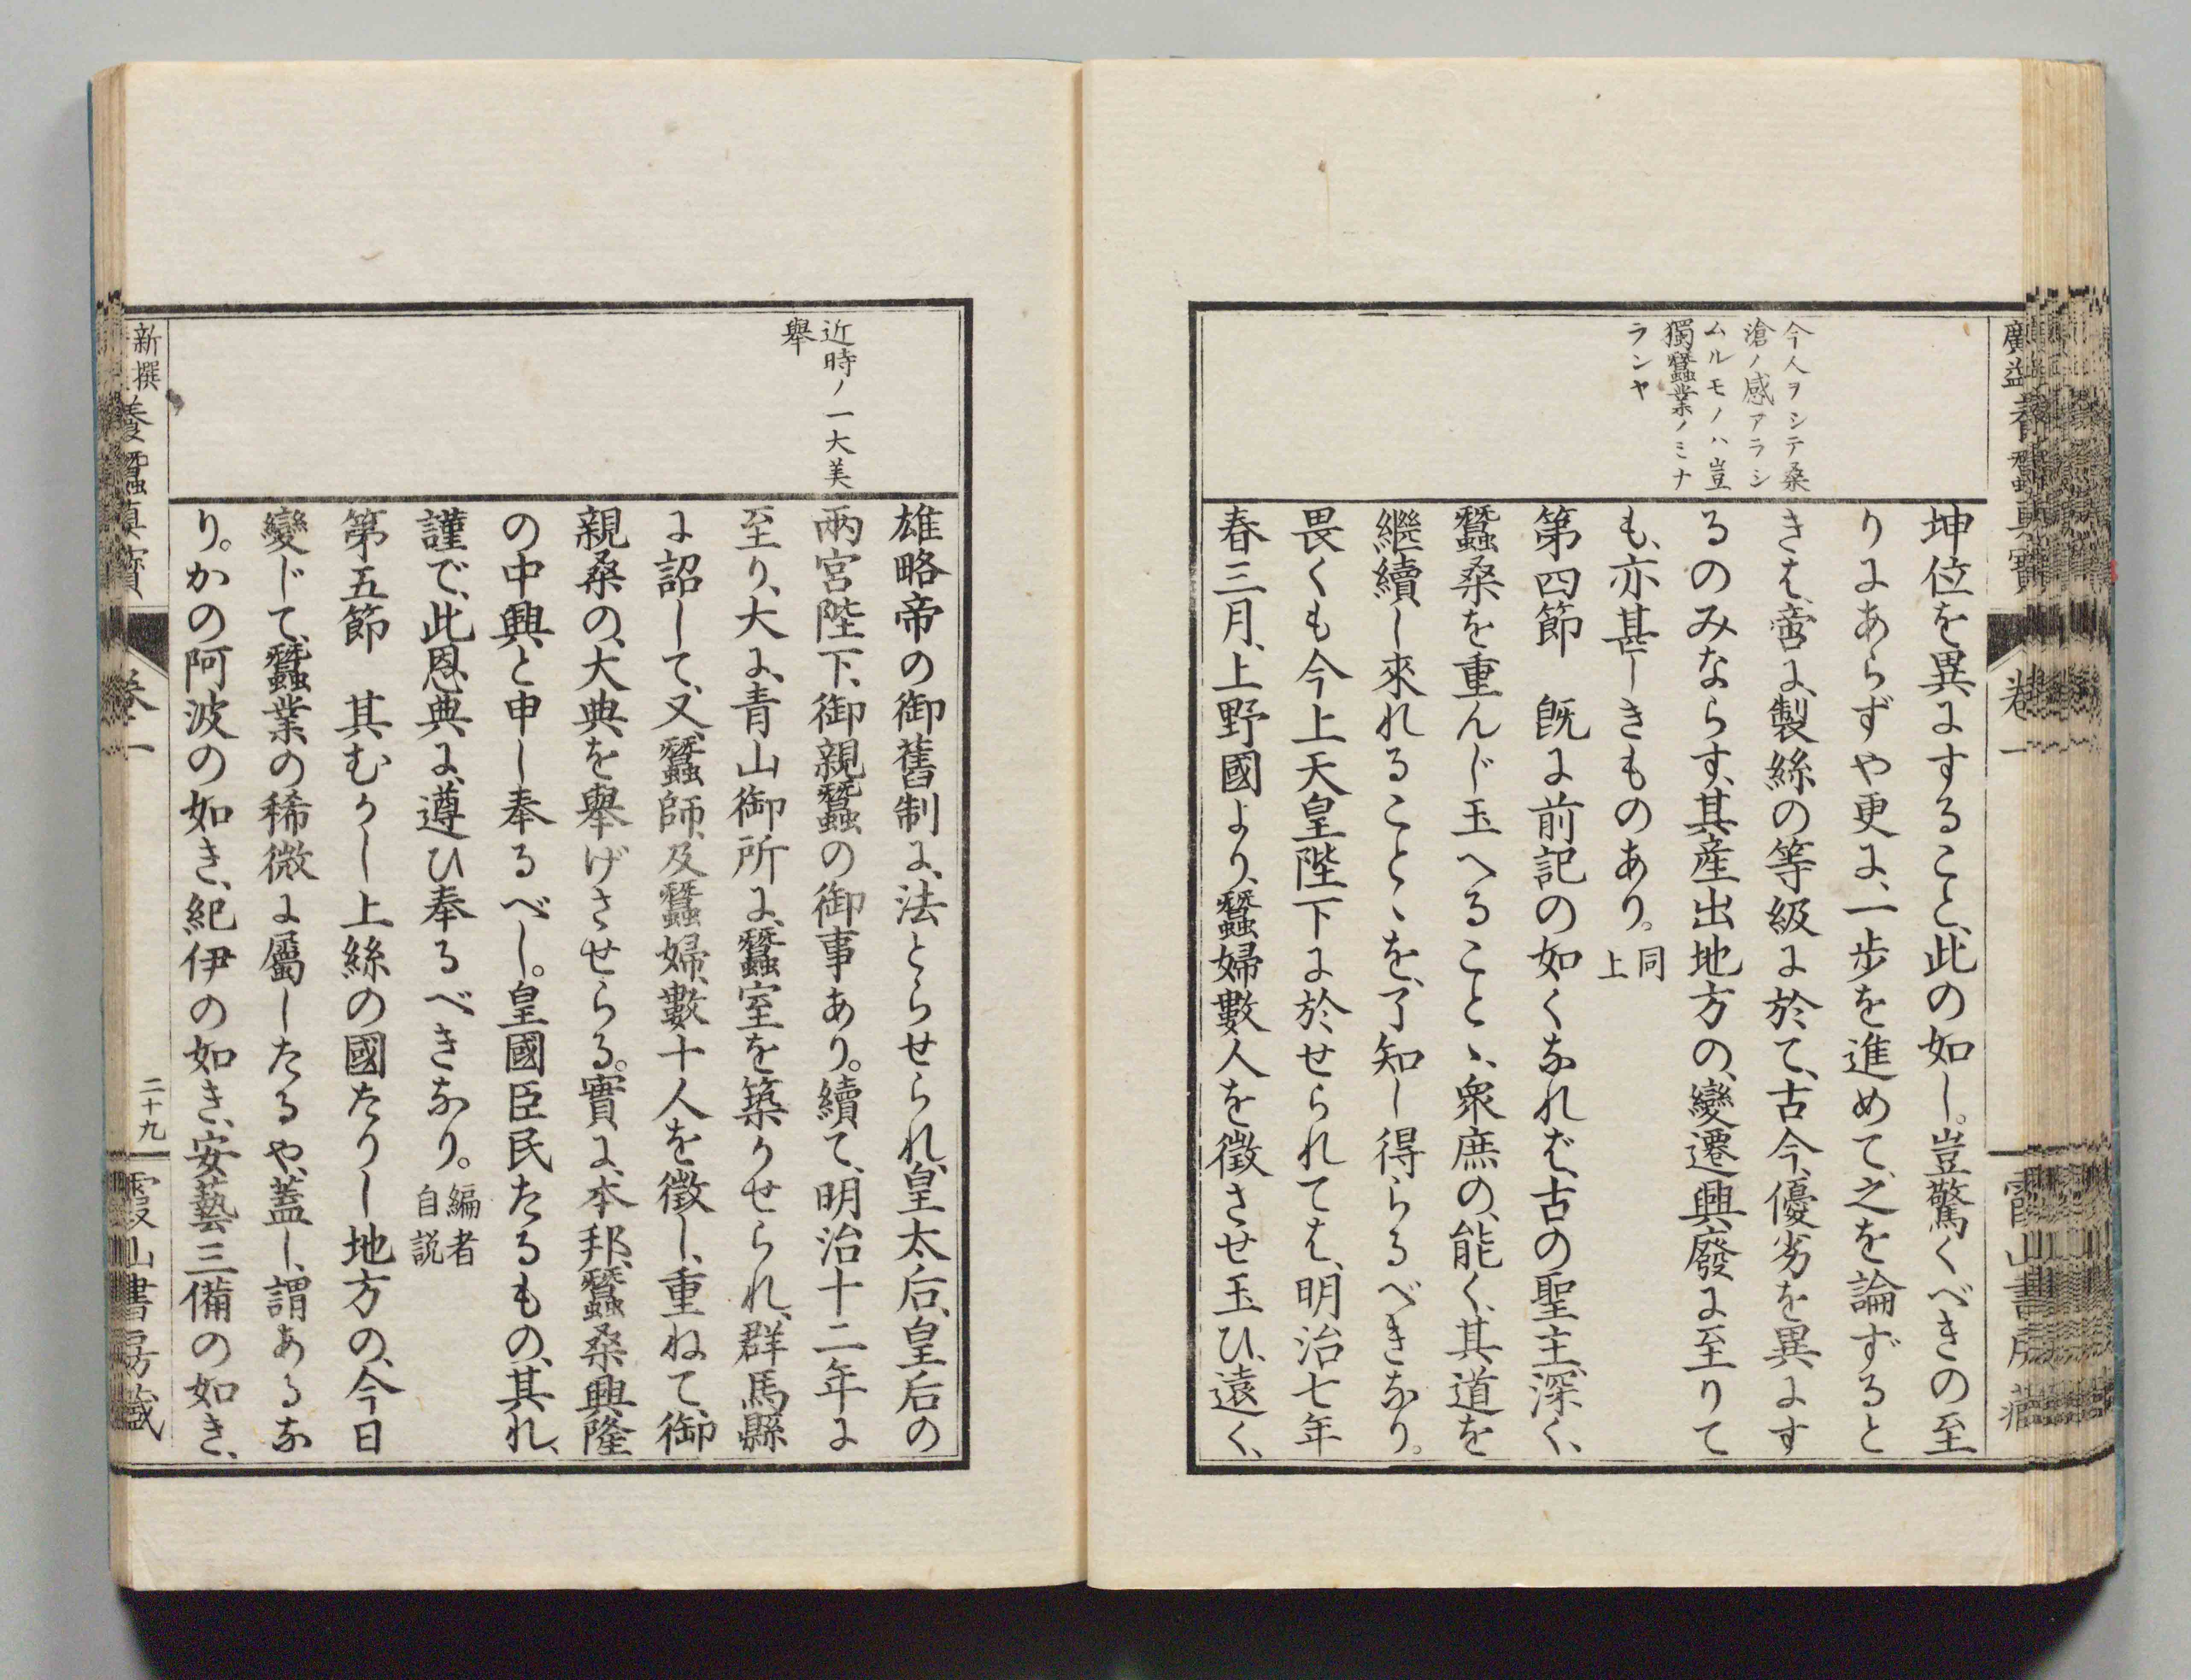 今人ヲシテ桑
滄ノ感アラシ
ムルモノハ豈
獨蠶業ノミナ
ランヤ
坤位を異にすること、此の如し。豈驚くべきの至
りにあらずや更に、一歩を進めて、之を論ずると
きは、啻に、製絲の等級に於て、古今、優劣を異にす
るのみならす、其産出地方の、變遷興廢に至りて
も、亦甚しきものあり。同上
第四節 既に前記の如くなれば、古の聖主、深く、
蠶桑を重んじ玉へること、衆庶の、能く、其道を
繼續し來れることゝを、了知し得らるべきなり。
畏くも今上天皇陛下に於せられては、明治七年
春三月、上野國より、蠶婦數人を徴させ玉ひ、遠く、
近時ノ一大美
舉
雄略帝の御舊制に、法とらせられ、皇太后、皇后の
兩宮陛下、御親蠶の御事あり。續て、明治十二年に
至り、大に、青山御所に、蠶室を築かせられ、群馬縣
に詔して、又、蠶師、及蠶婦、數十人を徴し、重ねて、御
親桑の、大典を舉げさせらる。實に、本邦、蠶桑興隆
の中興と申し奉るべし。皇國臣民たるもの、其れ、
謹で、此恩典に、遵ひ奉るべきなり。編者自説
第五節 其むかし上絲の國たりし地方の、今日
變じて、蠶業の稀微に屬したるや、蓋し、謂あるな
り。かの阿波の如き、紀伊の如き、安藝三備の如き、
新撰養蠶真寶
卷一
二十九
霞山書房藏